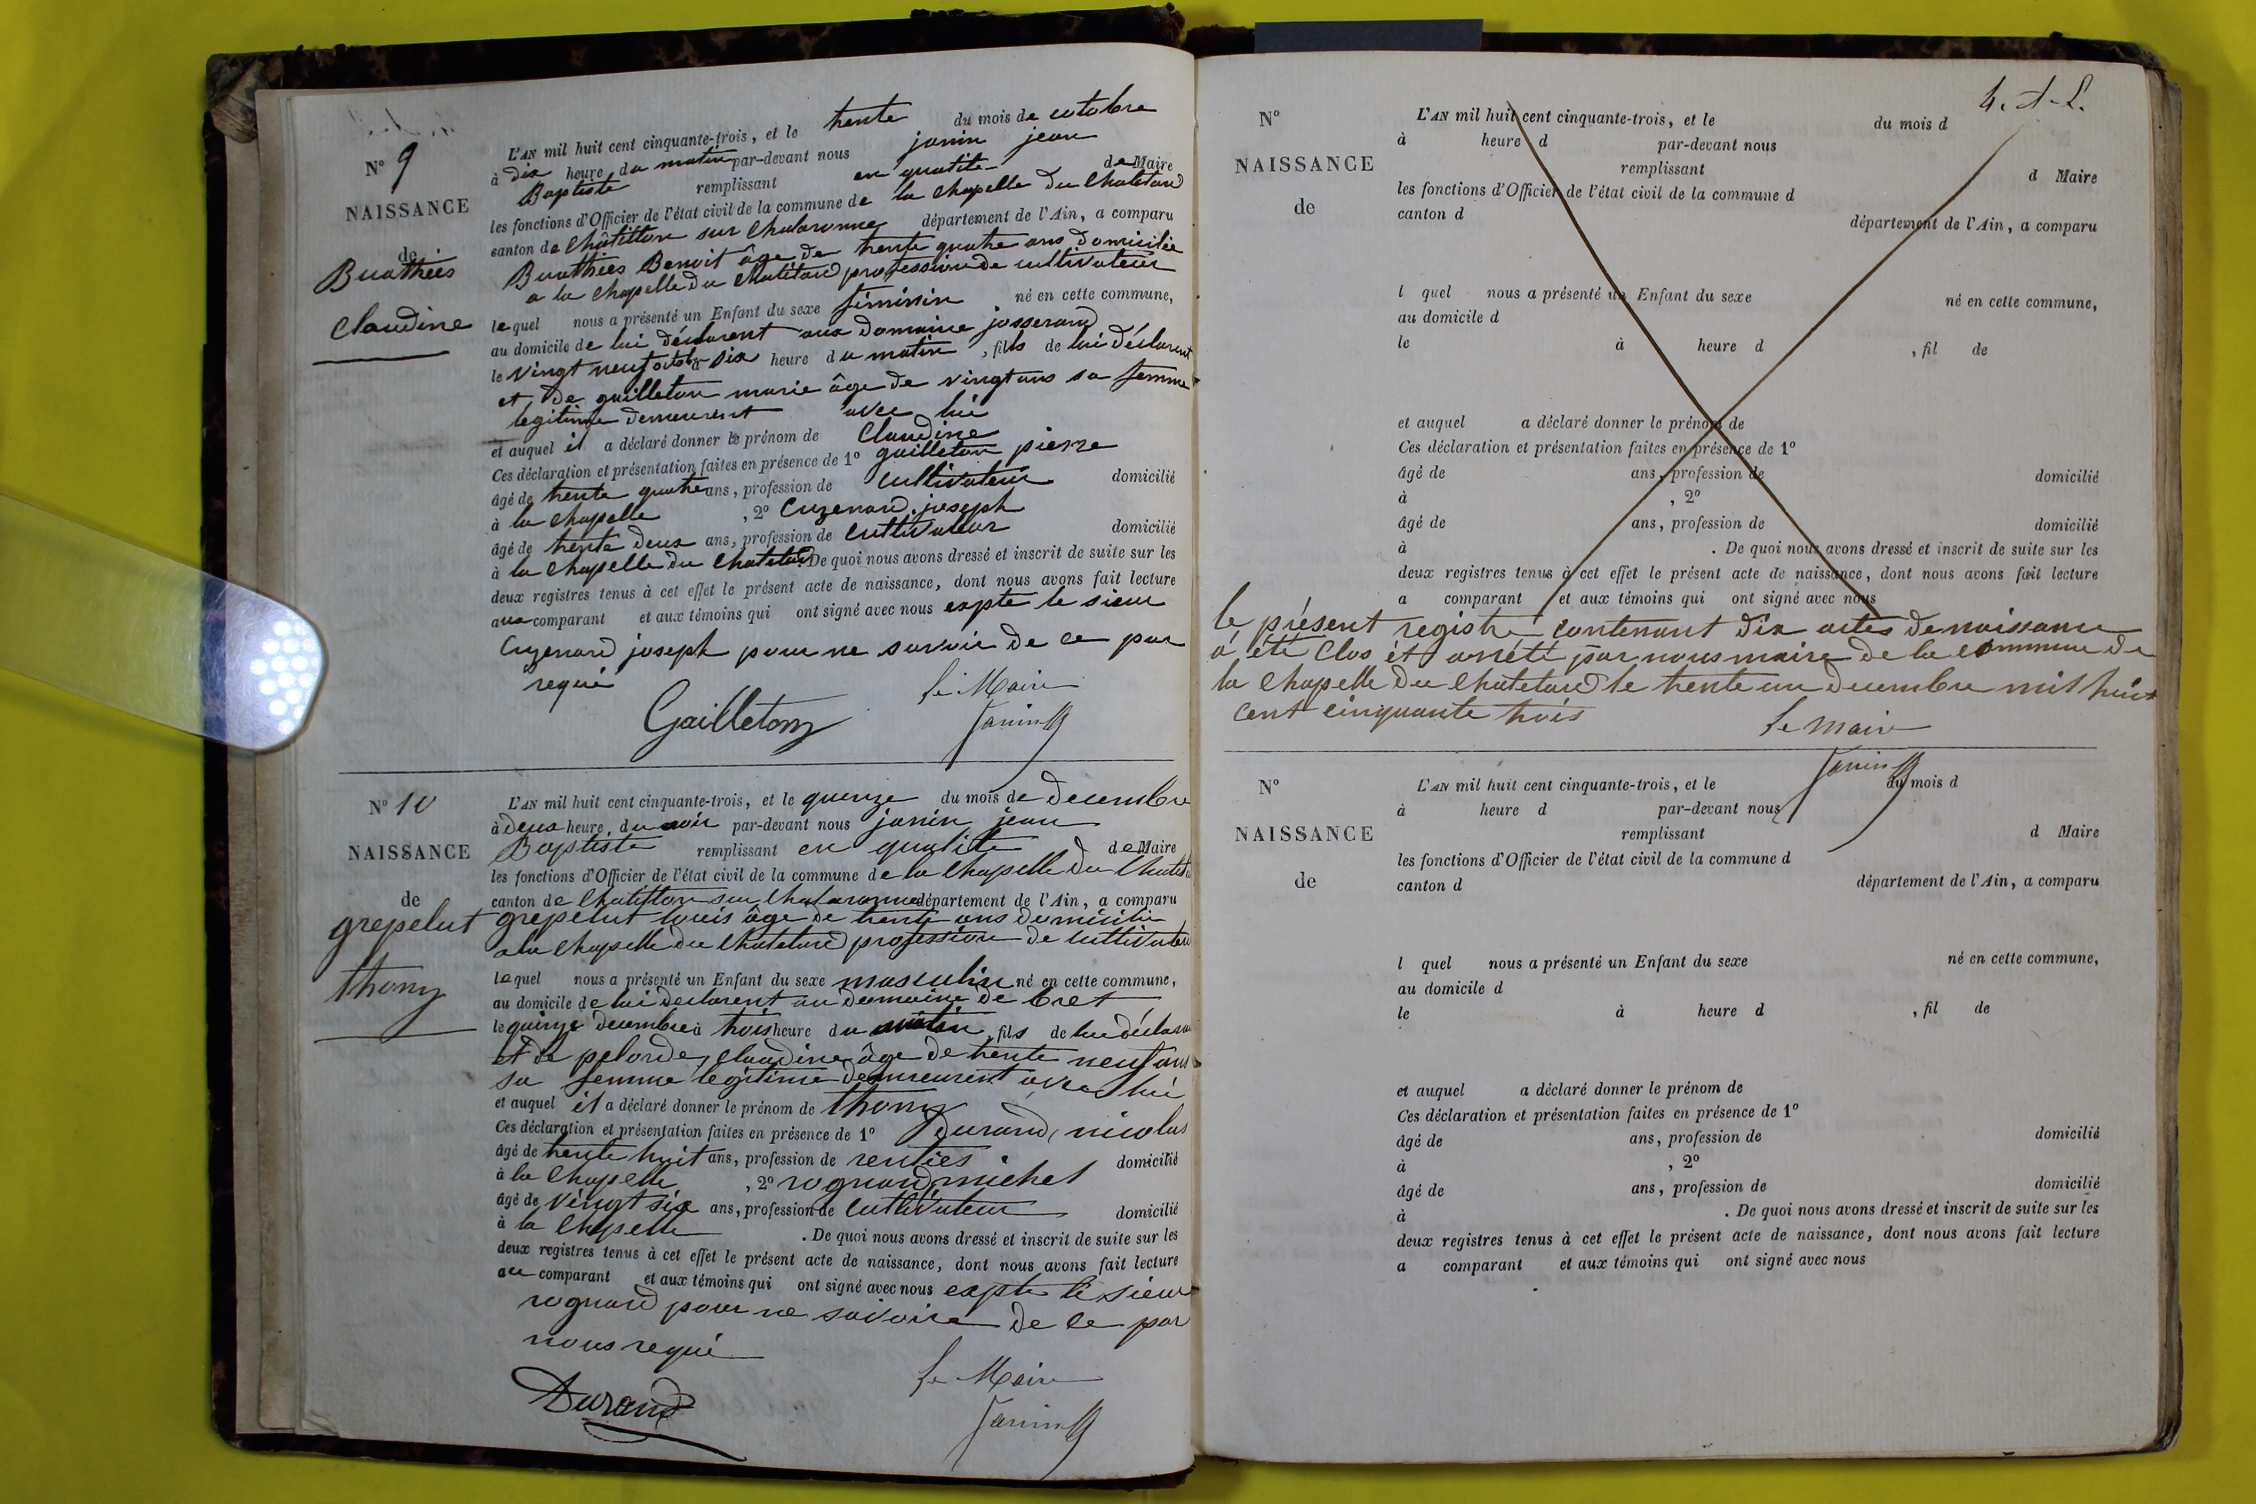 N° 9
NAISSANCE
de
Buathies
Claudine
L'AN mil huit cent cinquante-trois, et le trente du mois de octobre
à dix heure du matin par-devant nous janin jean
Baptiste remplissant en qualité de Maire
les fonctions d'Officier de l'état civil de la commune de la Chapelle du Chatelard
canton de Châtillon sur Chalaronne département de l'Ain, a comparu
Buathies Benoit âge de trente quatre ans domicilié
a la Chapelle du Chatelard profession de cultivateur
lequel nous a présenté un Enfant du sexe féminin né en cette commune,
au domicile de lui déclarent aux domaine josserand
le vingt neuf octobre à six heure du matin, fils de lui déclarent
et de guilleton marie âge de vingt ans sa femme
legitime demeurent avec lui
et auquel il a déclaré donner le prénom de Claudine
Ces déclaration et présentation faites en présence de 1° guilleton pierre
âgé de trente quatre ans, profession de Cultivateur domicilié
à la Chapelle , 2° Cuzenard joseph
âgé de trente deux ans, profession de Cultivateur domicilié
à la Chapelle du Chatelard. De quoi nous avons dressé et inscrit de suite sur les
deux registres tenus à cet effet le présent acte de naissance, dont nous avons fait lecture
aux comparant et aux témoins qui ont signé avec nous expte le sieur
Cuzenard joseph pour ne savoir de ce par
requi
Le Maire
Gailleton Janin
N° 10
NAISSANCE
de
grepelut
thony
L'AN mil huit cent cinquante-trois, et le quinze du mois de decembre
à deux heure du soir par-devant nous janin jean
Baptiste remplissant en qualité de Maire
les fonctions d'Officier de l'état civil de la commune de la Chapelle du Chatel
canton de Chatillon sur Chalaronne département de l'Ain, a comparu
grepelut louis âge de trente ans domicilie
a la Chapelle du Chatelard profession de cultivateur
lequel nous a présenté un Enfant du sexe masculin né en cette commune,
au domicile de lui declarent au domaine de bret
le quinze decembre à trois heure du matin, fils de lui déclarent
et de pelorde, claudine âge de trente neuf ans
sa femme legitime demeurent avec lui
et auquel il a déclaré donner le prénom de thony
Ces déclaration et présentation faites en présence de 1° Durand, nicolas
âgé de trente huit ans, profession de rentier domicilié
à la Chapelle , 2° rognard michel
âgé de vingt six ans, profession de Cultivateur domicilié
à la Chapelle . De quoi nous avons dressé et inscrit de suite sur les
deux registres tenus à cet effet le présent acte de naissance, dont nous avons fait lecture
au comparant et aux témoins qui ont signé avec nous expte le sieur
rognard pour ne savoire de ce par
nous requi
Le Maire
Durand Janin
N°
NAISSANCE
de
L'AN mil huit cent cinquante-trois, et le du mois d
à heure d par-devant nous
remplissant d Maire
les fonctions d'Officier de l'état civil de la commune d
canton d département de l'Ain, a comparu
l quel nous a présenté un Enfant du sexe né en cette commune,
au domicile d
le à heure d , fil de
et auquel a déclaré donner le prénom de
Ces déclaration et présentation faites en présence de 1°
âgé de ans, profession de domicilié
à , 2°
âgé de ans, profession de domicilié
à . De quoi nous avons dressé et inscrit de suite sur les
deux registres tenus à cet effet le présent acte de naissance, dont nous avons fait lecture
a comparant et aux témoins qui ont signé avec nous
le présent registre contenant dix actes de naissance
a été Clos et arrêté par nous maire de la Commune de
la Chapelle du Chatelard le trente un decembre mil huit
cent cinquante trois
Le Maire
Janin
N°
NAISSANCE
de
L'AN mil huit cent cinquante-trois, et le du mois d
à heure d par-devant nous
remplissant d Maire
les fonctions d'Officier de l'état civil de la commune d
canton d département de l'Ain, a comparu
l quel nous a présenté un Enfant du sexe né en cette commune,
au domicile d
le à heure d , fil de
et auquel a déclaré donner le prénom de
Ces déclaration et présentation faites en présence de 1°
âgé de ans, profession de domicilié
à , 2°
âgé de ans, profession de domicilié
à . De quoi nous avons dressé et inscrit de suite sur les
deux registres tenus à cet effet le présent acte de naissance, dont nous avons fait lecture
a comparant et aux témoins qui ont signé avec nous